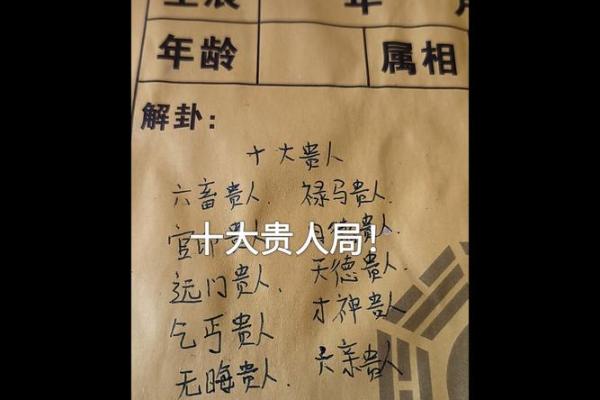 生辰 年 月
年龄 属相
解卦：
十大贵人
六畜贵人、禄马贵人.
官印贵人 德贵人.
十大贵人局！
远门贵人. 天德贵人.
乞丐贵人 才神贵人
无晦贵人. 亲贵人.